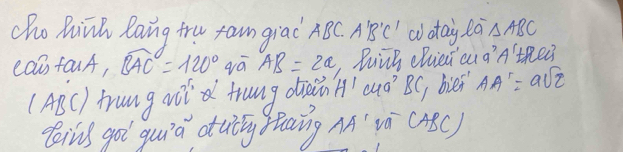 Cho hình lăng trụ tam giác ABC. A'B'C' có đáy là △ABC
cân tại A, BAC = 120° và AB = 2a, hình chiếu của A' trên
(ABC) trùng với trung điểm H của BC, biết AA' = a√2
tính góc giữa đường thẳng AA' và (ABC)